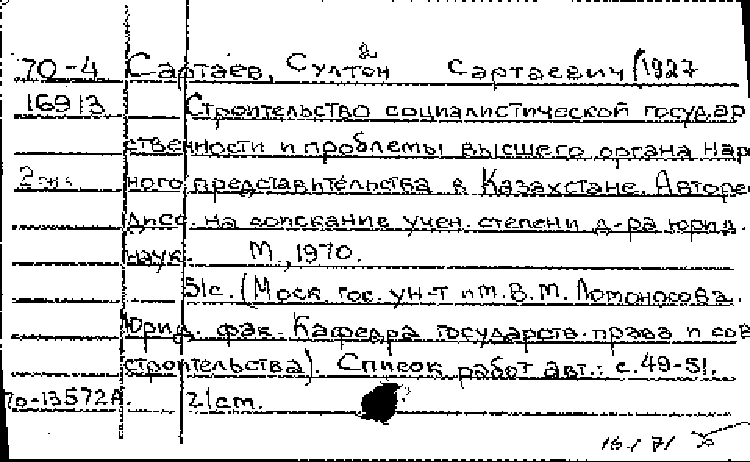 70-4 Сартаев, Султан Сартаевич (1927
16913 Строительство социалистической государ
ственности и проблемы высшего органа нар
2 экз. ного представительства в Казахстане. Авторе
дисс. на соискание учен. степени д-ра юрид.
наук. М., 1970.
51с. (Моск. гос. ун-т им. В. М. Ломоносова.
Юрид. фак. Кафедра государств. права и сов
строительства). Список работ авт.: с. 49-51.
70-13572А. 21cm.
16/71